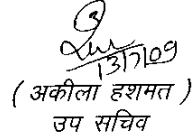 13/7/09
( अकीला हशमत )
उप सचिव